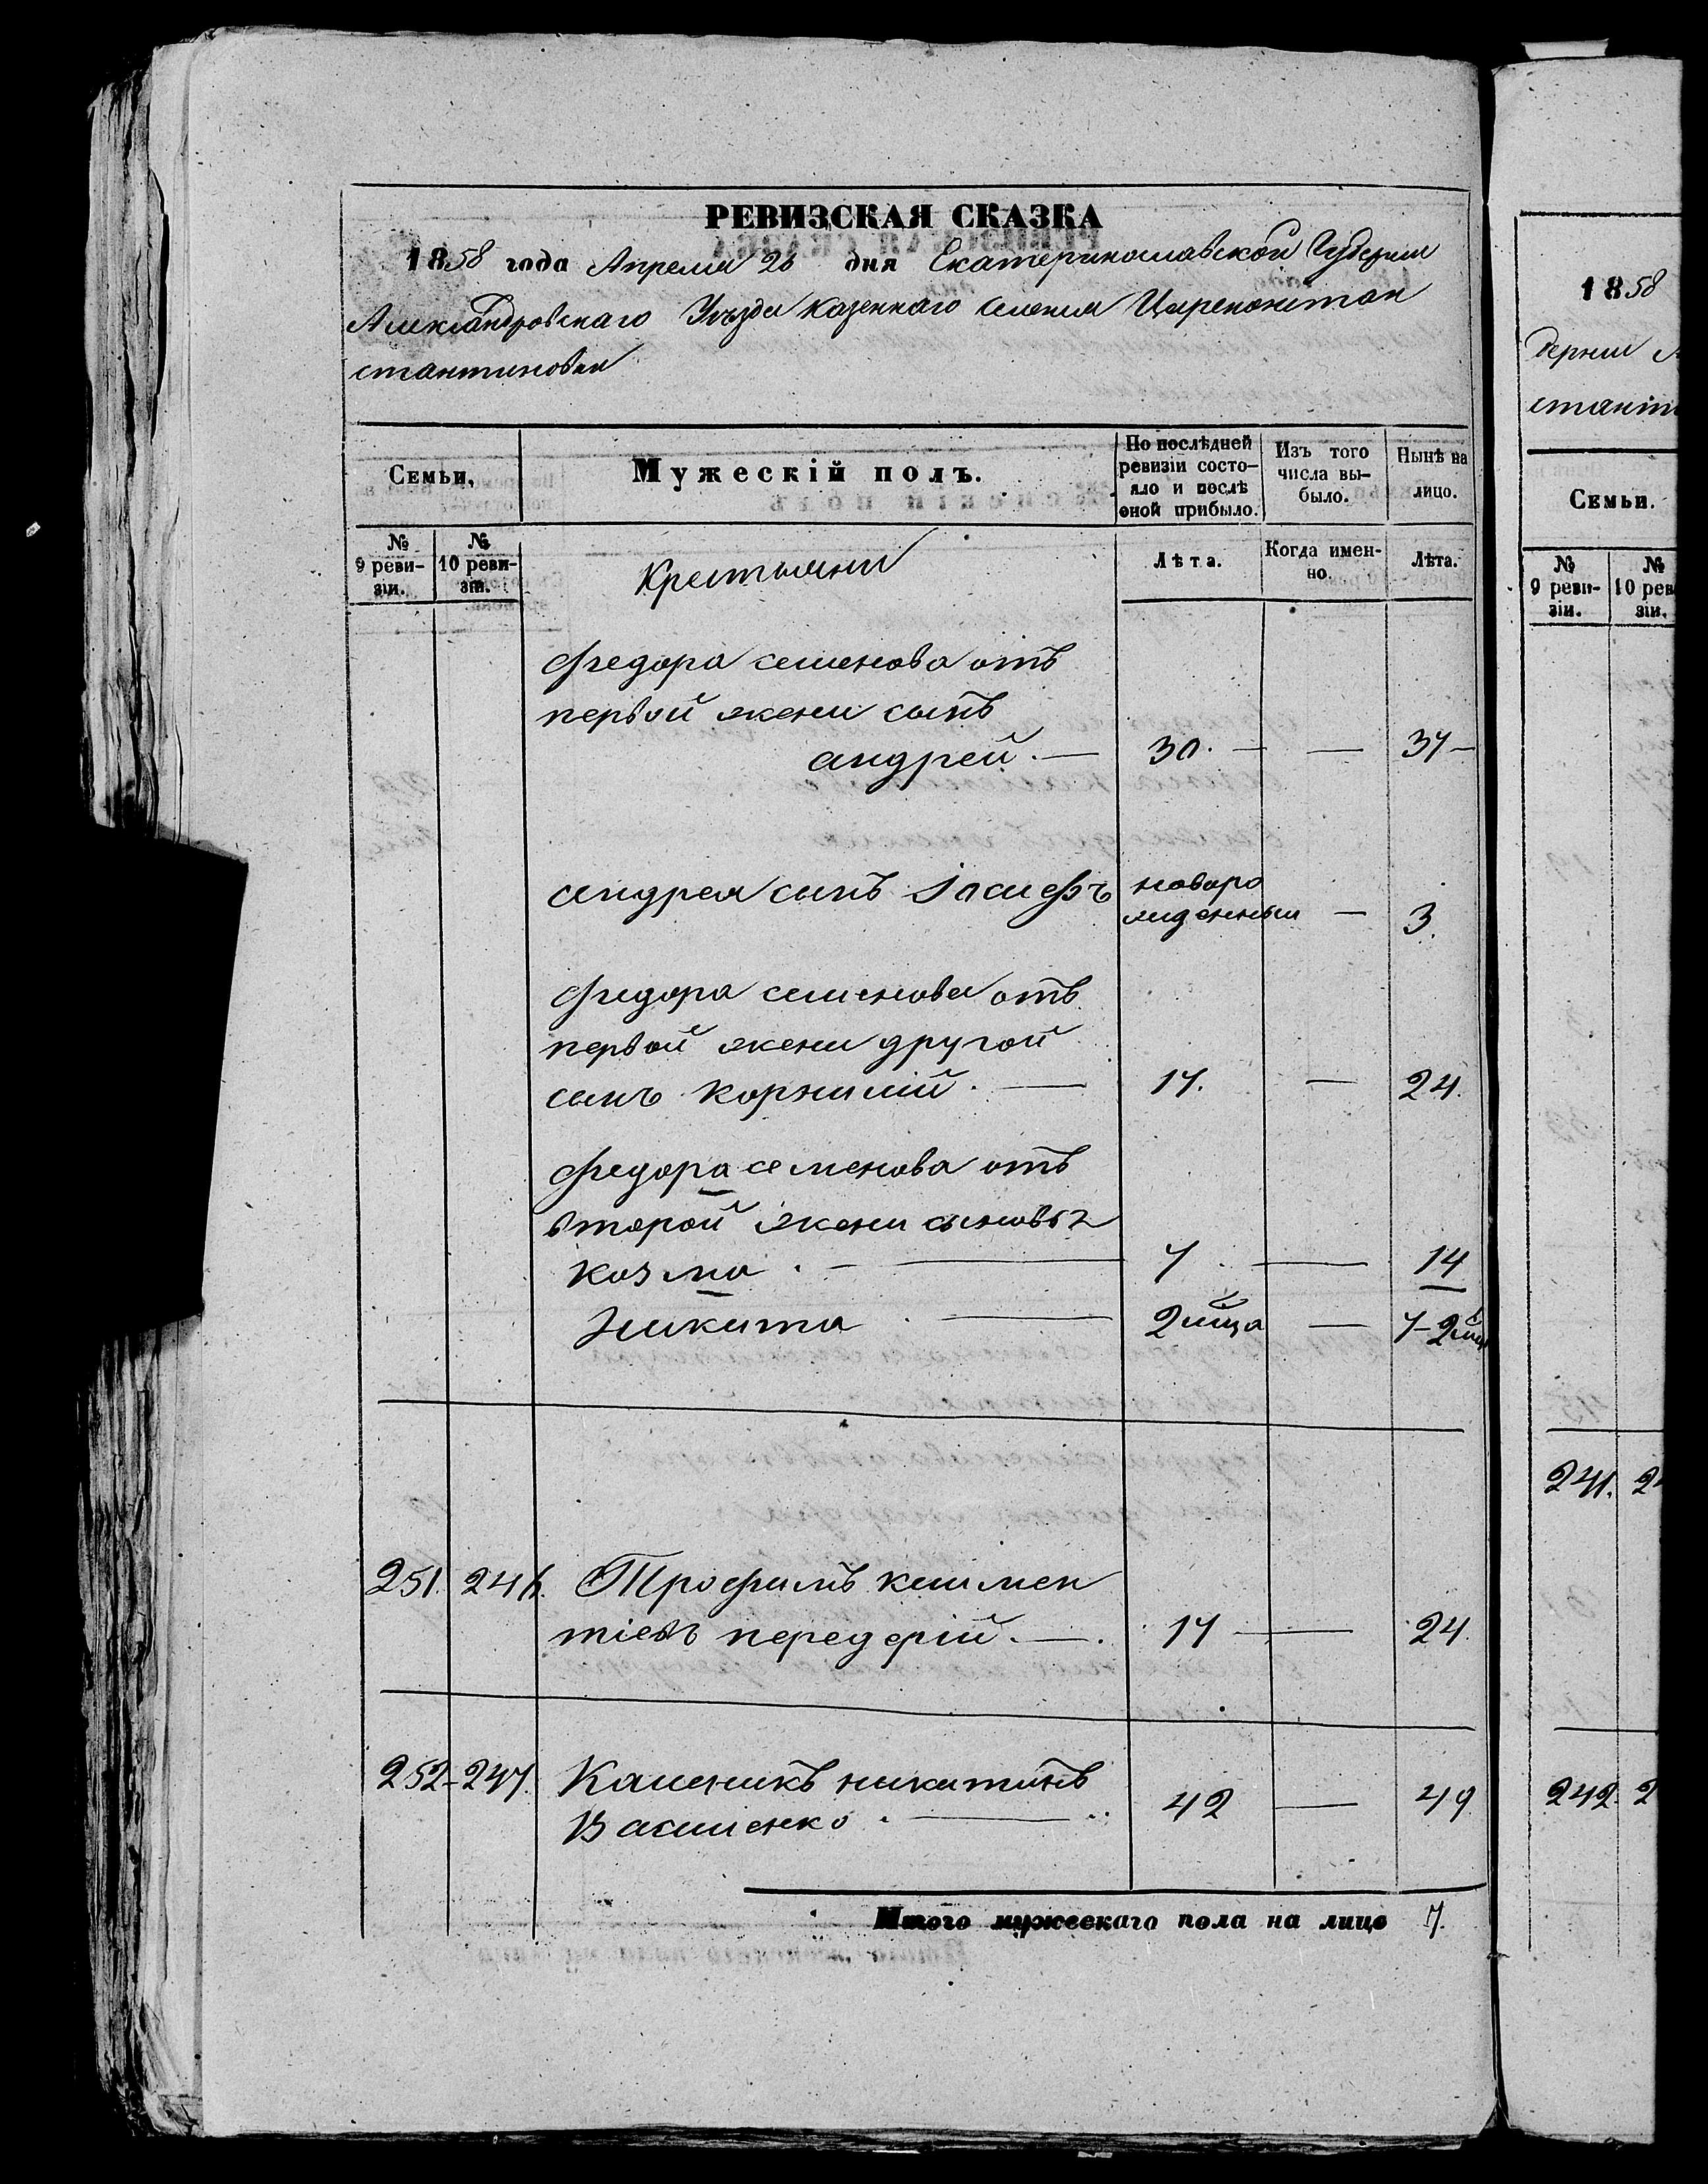 РЕВИЗСКАЯ СКАЗКА
1858 года Апреля 26 дня Екатеринославской Губернии
Александровскаго Уѣзда казеннаго селенія Цареконстан
стантиновки
Семьи.
Мужескій полъ.
По послѣдней ревизіи состо-
яло и послѣ оной прибыло.
Изъ того числа вы-
было.
Нынѣ на лицо.
№ 9 реви-
зіи.
№ 10 реви-
зіи.
Крестьяни
Лѣта.
Когда имен-
но.
Лѣта.
Федора семенова отъ
первой жени сынъ
андрей. — 30. — — 37 —
андрея сынъ Іосифъ новоро
жденный — 3.
Федора семенова отъ
первой жени другой
сынъ корнилій. — 17. — 24.
Федора семенова отъ
второй жени сыновья 2
козма. — 7. — 14
Никита. — 2 мца — 7-2 мца
251. 246. Трофимъ климен
тіевъ передерій. — 17 — 24.
252-247. Каленикъ никитинъ
Василенко. — 42 — 49
Итого мужескаго пола на лицо 7.
1858
берніи
стант
Семьи.
№ 9 реви-
зіи.
№ 10 рев
зіи.
241. 2
242. 2